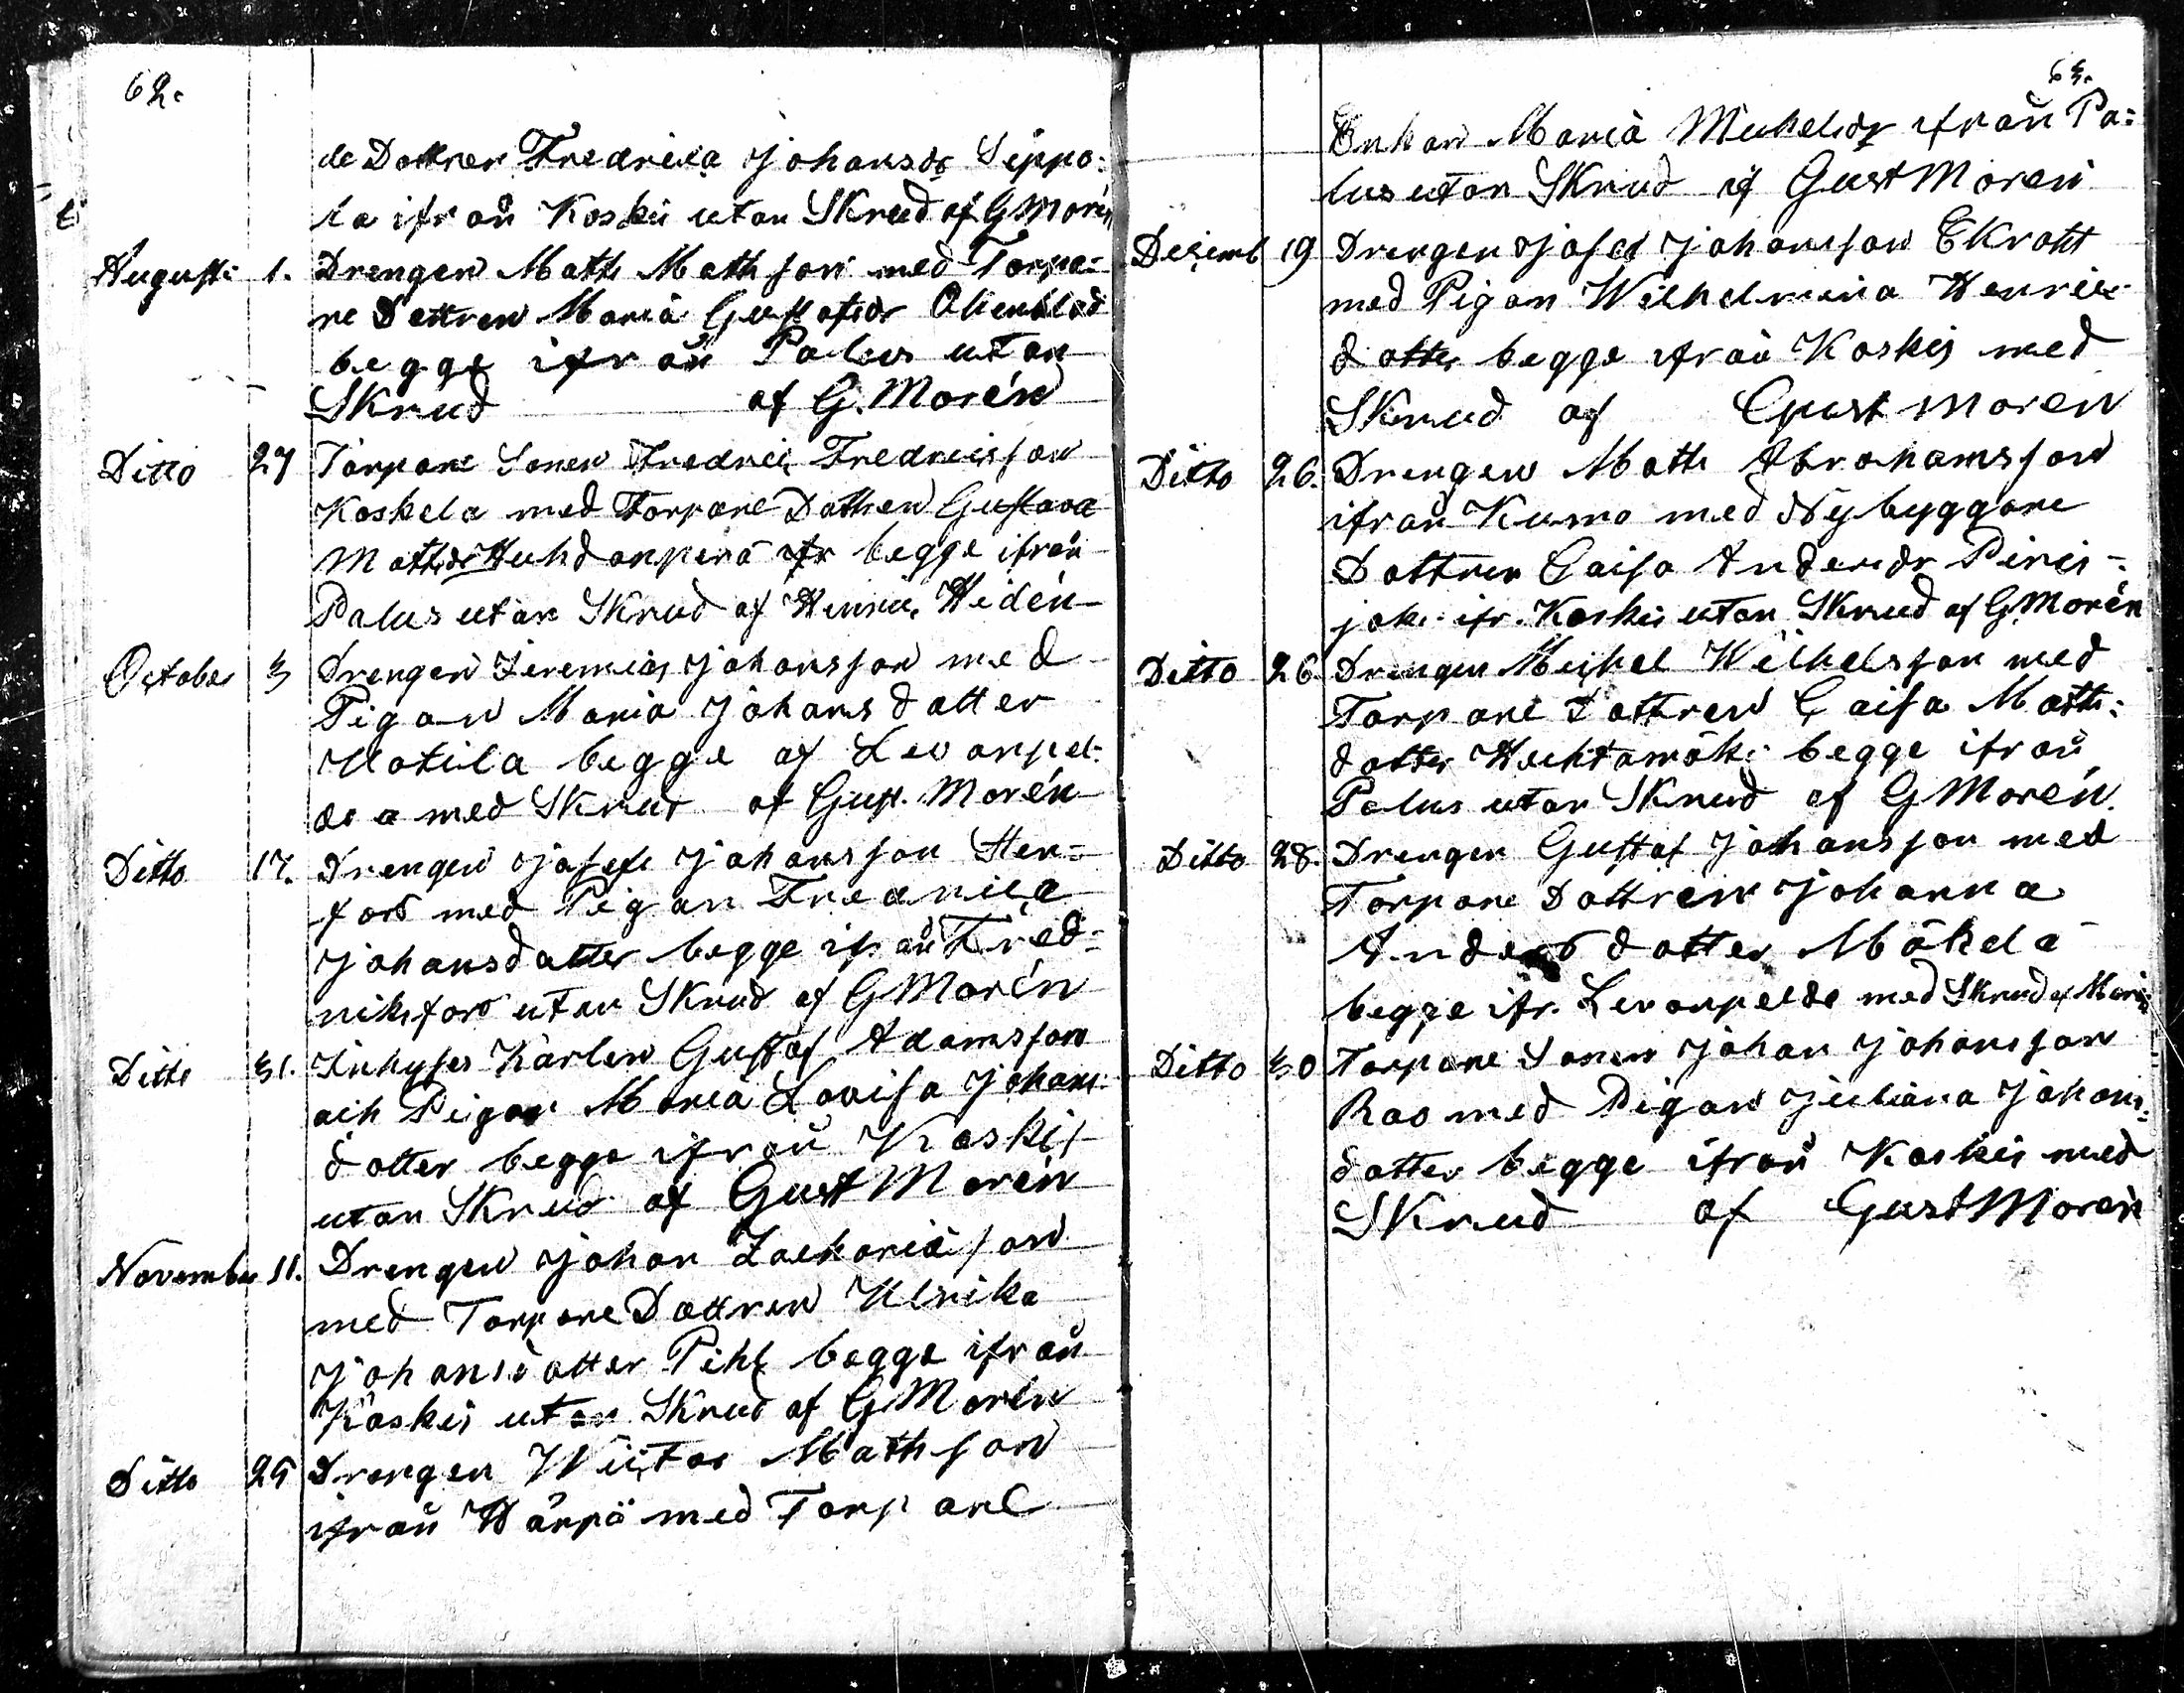 62.
de Dottren Fredrica Johansdr Sippo=
la ifrån Koskis utan Skrud af G Morén
Augusti 1. Drengen Matts Mathson med Torpa=
re Dottren Maria Gustafsdr Åkerblad
begge ifrån Palus utan
Skrud af G. Morén
Ditto 27 Torpare Sonen Fredric Fredricsson
Koskela med Torpare Dottren Gustava
Mattsdr Huhdanperä ifr begge ifrån
Palus utan Skrud af Henric Hidén
October 3 Drengen Jeremias Johansson med
Pigan Maria Johansdotter
Uotila begge af Levanpel=
do a med Skrud af Gust. Morén
Ditto 17. Drengen Josefe Johansson Hen=
fors med Pigan Fredrica
Johansdotter begge ifrån Fred=
riksfors utan Skrud af G Morén
Ditto 31. Inhyses Karlen Gustaf Adamsson
och Pigan Maria Lovisa Johans=
dotter begge ifrån Koskis
utan Skrud af Gust Morén
November 11. Drengen Johan Zachariasson
med Torpare Dottren Ulrika
Johansdotter Pihl begge ifrån
Koskis utan Skrud af G Morén
Ditto 25 Drengen Wiktor Mathson
ifrån Härpö med Torpare
63.
Enkan Maria Michelsdr ifrån Pa=
lus utan Skrud af Gust Morén
Desemb 19 Drengen Josef Johansson Ekrott
med Pigan Wilhelmina Henrics
dotter begge ifrån Koskis med
Skrud af Gust Morén
Ditto 26. Drengen Matts Abrahamsson
ifrån Kumo med Nybyggare
Dottren Caisa Andersdr Piris=
joki ifr. Koskis utan Skrud af G Morén
Ditto 26. Drengen Michel Wilhelsson med
Torpare Dottren Caisa Matts=
dotter Huhtamäki begge ifrån
Palus utan Skrud af G Morén.
Ditto 28. Drengen Gustaf Johansson med
Torpare Dottren Johanna
Andersdotter Mäkelä
begge ifr. Levanpeldo med Skrud af Morén
Ditto 30 Torpare Sonen Johan Johansson
Rao med Pigan Juliana Johans=
dotter begge ifrån Koskis med
Skrud af Gust Morén